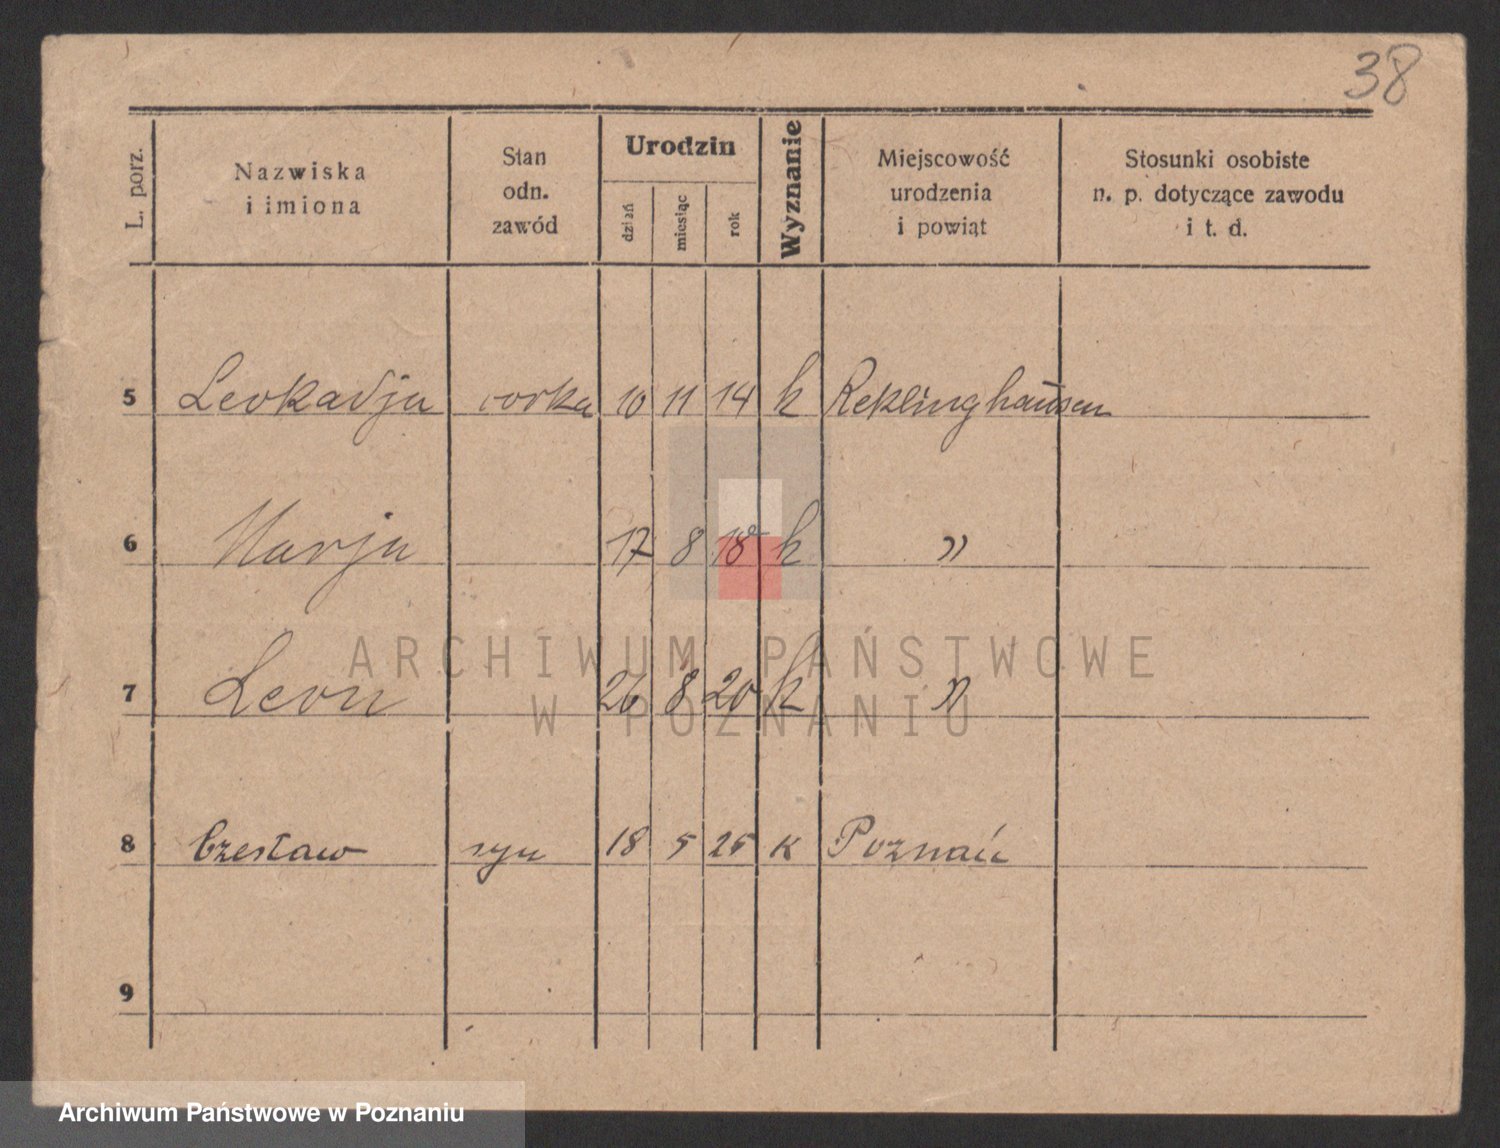 38
L. porz.
Nazwiska
i imiona
Stan
odn.
zawód
Urodzin
dzień
miesiąc
rok
Wyznanie
Miejscowość
urodzenia
i powiąt
Stosunki osobiste
n. p. dotyczące zawodu
i t. d.
5 Leokadja corka 10 11 14 k Reklinghausen
6 Marja 17 8 18 k "
ARCHIWUM PAŃSTWOWE
W POZNANIU
7 Leon 26 8 20 k "
8 Czesław syn 18 5 25 K Poznań
9
Archiwum Państwowe w Poznaniu